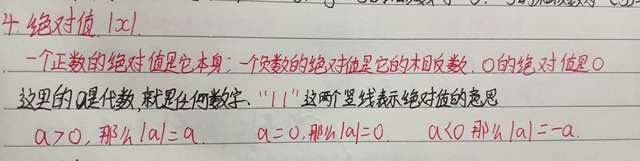 4. 绝对值 |x|.
一个正数的绝对值是它本身；一个负数的绝对值是它的相反数. 0的绝对值是0
这里的a是代数,就是任何数字、"||"这两个竖线表示绝对值的意思
a>0, 那么|a|=a. a=0, 那么|a|=0. a<0 那么|a|=-a.